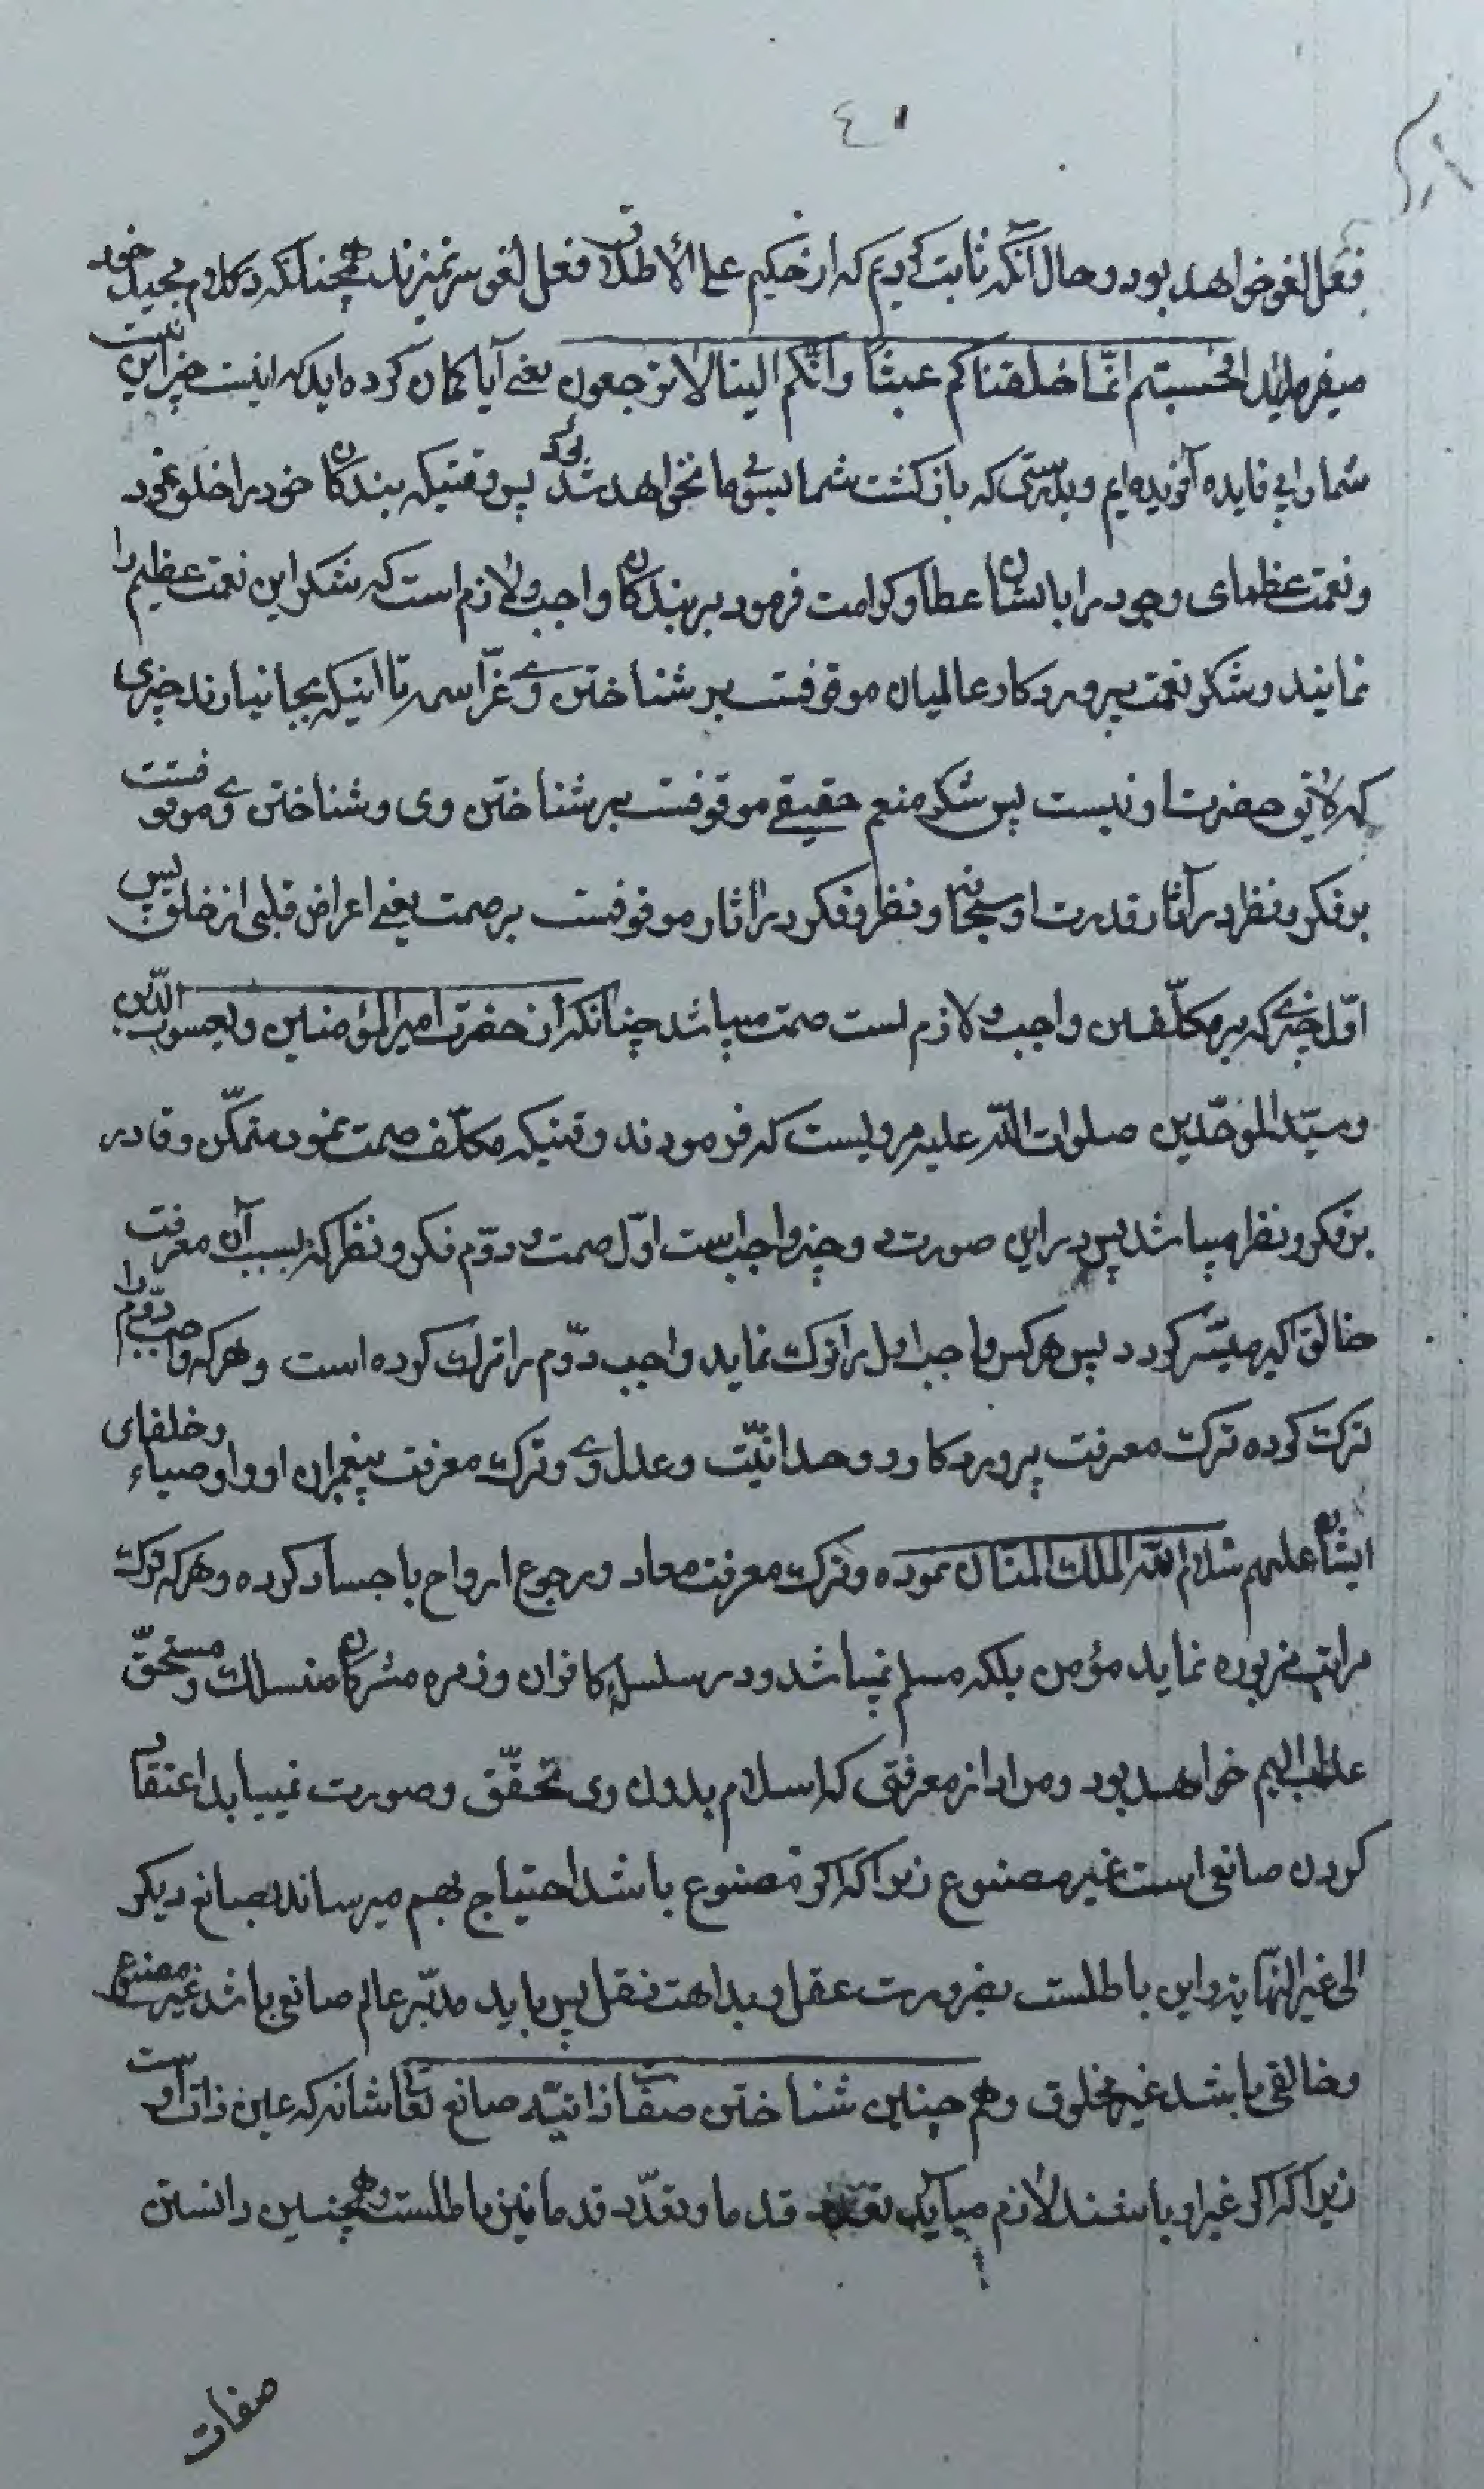 ٤١
فعل لغو خواهد بود و حال آنکه ثابت کردیم که از حکیم علی الاطلاق فعل لغو سر نمیزند همچنانکه در کلام مجید خود
میفرماید افحسبتم انّما خلقناکم عبثاً وانّکم الینا لا ترجعون یعنی آیا کمان کرده اید که اینست جز این نیست
شما را بی فایده آفریده ایم و بدرستی که باز کشت شما بسوی ما نخواهد شد پس وقتیکه بندکان خود را خلق نمود
و نعمت عظمای وجود را بایشان عطا و کرامت فرمود بر بندکان واجب و لازم است که شکر این نعمت عظیم را
نمایند و شکر نعمت پروردکار عالمیان موقوفست بر شناختن وی عزّ اسمه تا اینکه بجا نیارند چیزی
که لایق حضرت او نیست پس شکر منعم حقیقی موقوفست بر شناختن وی و شناختن وی موقوفست
بر فکر و نظر در آثار قدرت او سبحانه و نظر و فکر در اثار موقوفست بر صمت یعنی اعراض قلبی از خلق پس
اوّل چیزی که بر مکلّفین واجب و لازم است صمت میباشد چنانکه از حضرت امیر المؤمنین و یعسوب الدّین
و سیّد الموحّدین صلوات اللّه علیه مرویست که فرمودند وقتیکه مکلّف صمت نمود متمکّن و قادر
بر فکر و نظر میباشد پس در این صورت دو چیز واجبست اوّل صمت و دوّم فکر و نظر که بسبب آن معرفت
خالق اکبر میسّر کردد پس هر کس واجب اول را ترک نماید واجب دوّم را ترک کرده است و هر که واجب دوّم را
ترک کرده ترک معرفت پروردکار و وحدانیّت و عدل وی و ترک معرفت پیغمبران او و اوصیاء و خلفای
ایشان علیهم سلام اللّه الملک المنّان نموده و ترک معرفت معاد و رجوع ارواح باجساد کرده و هر که ترک
مراتب مزبوره نماید مؤمن بلکه مسلم نمیباشد و در سلسلهٔ کافران و زمره مشرکان منسلک و مستحقّ
عذاب الیم خواهد بود و مراد از معرفتی که اسلام بدون وی تحقّق و صورت نمییابد اعتقاد
کردن صانعی است غیر مصنوع زیرا که اکر مصنوع باشد احتیاج بهم میرساند بصانع دیکر
الی غیر النّهایه و این باطلست بضرورت عقل و بداهت نقل پس باید مدبّر عالم صانعی باشد غیر مصنوع
و خالقی باشد غیر مخلوق و هم چنین شناختن صفات ذاتیّه صانع تعالی شانه که عین ذات اوست
زیرا که اکر غیر او باشند لازم میآید تعدّد قدما و تعدّد قدما نیز باطلست و همچنین دانستن
صفات